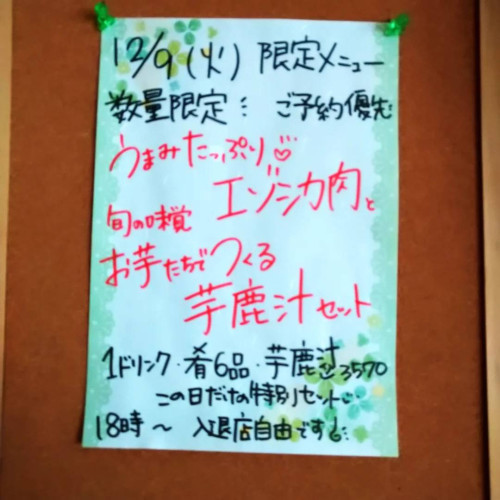 12/9(火) 限定メニュー
数量限定 ご予約優先
うまみたっぷり♡
エゾシカ肉と
旬の味覚
お芋たちでつくる
芋鹿汁セット
1ドリンク・肴6品・芋鹿汁 3570
この日だけの特別セット
18時〜 入退店自由です